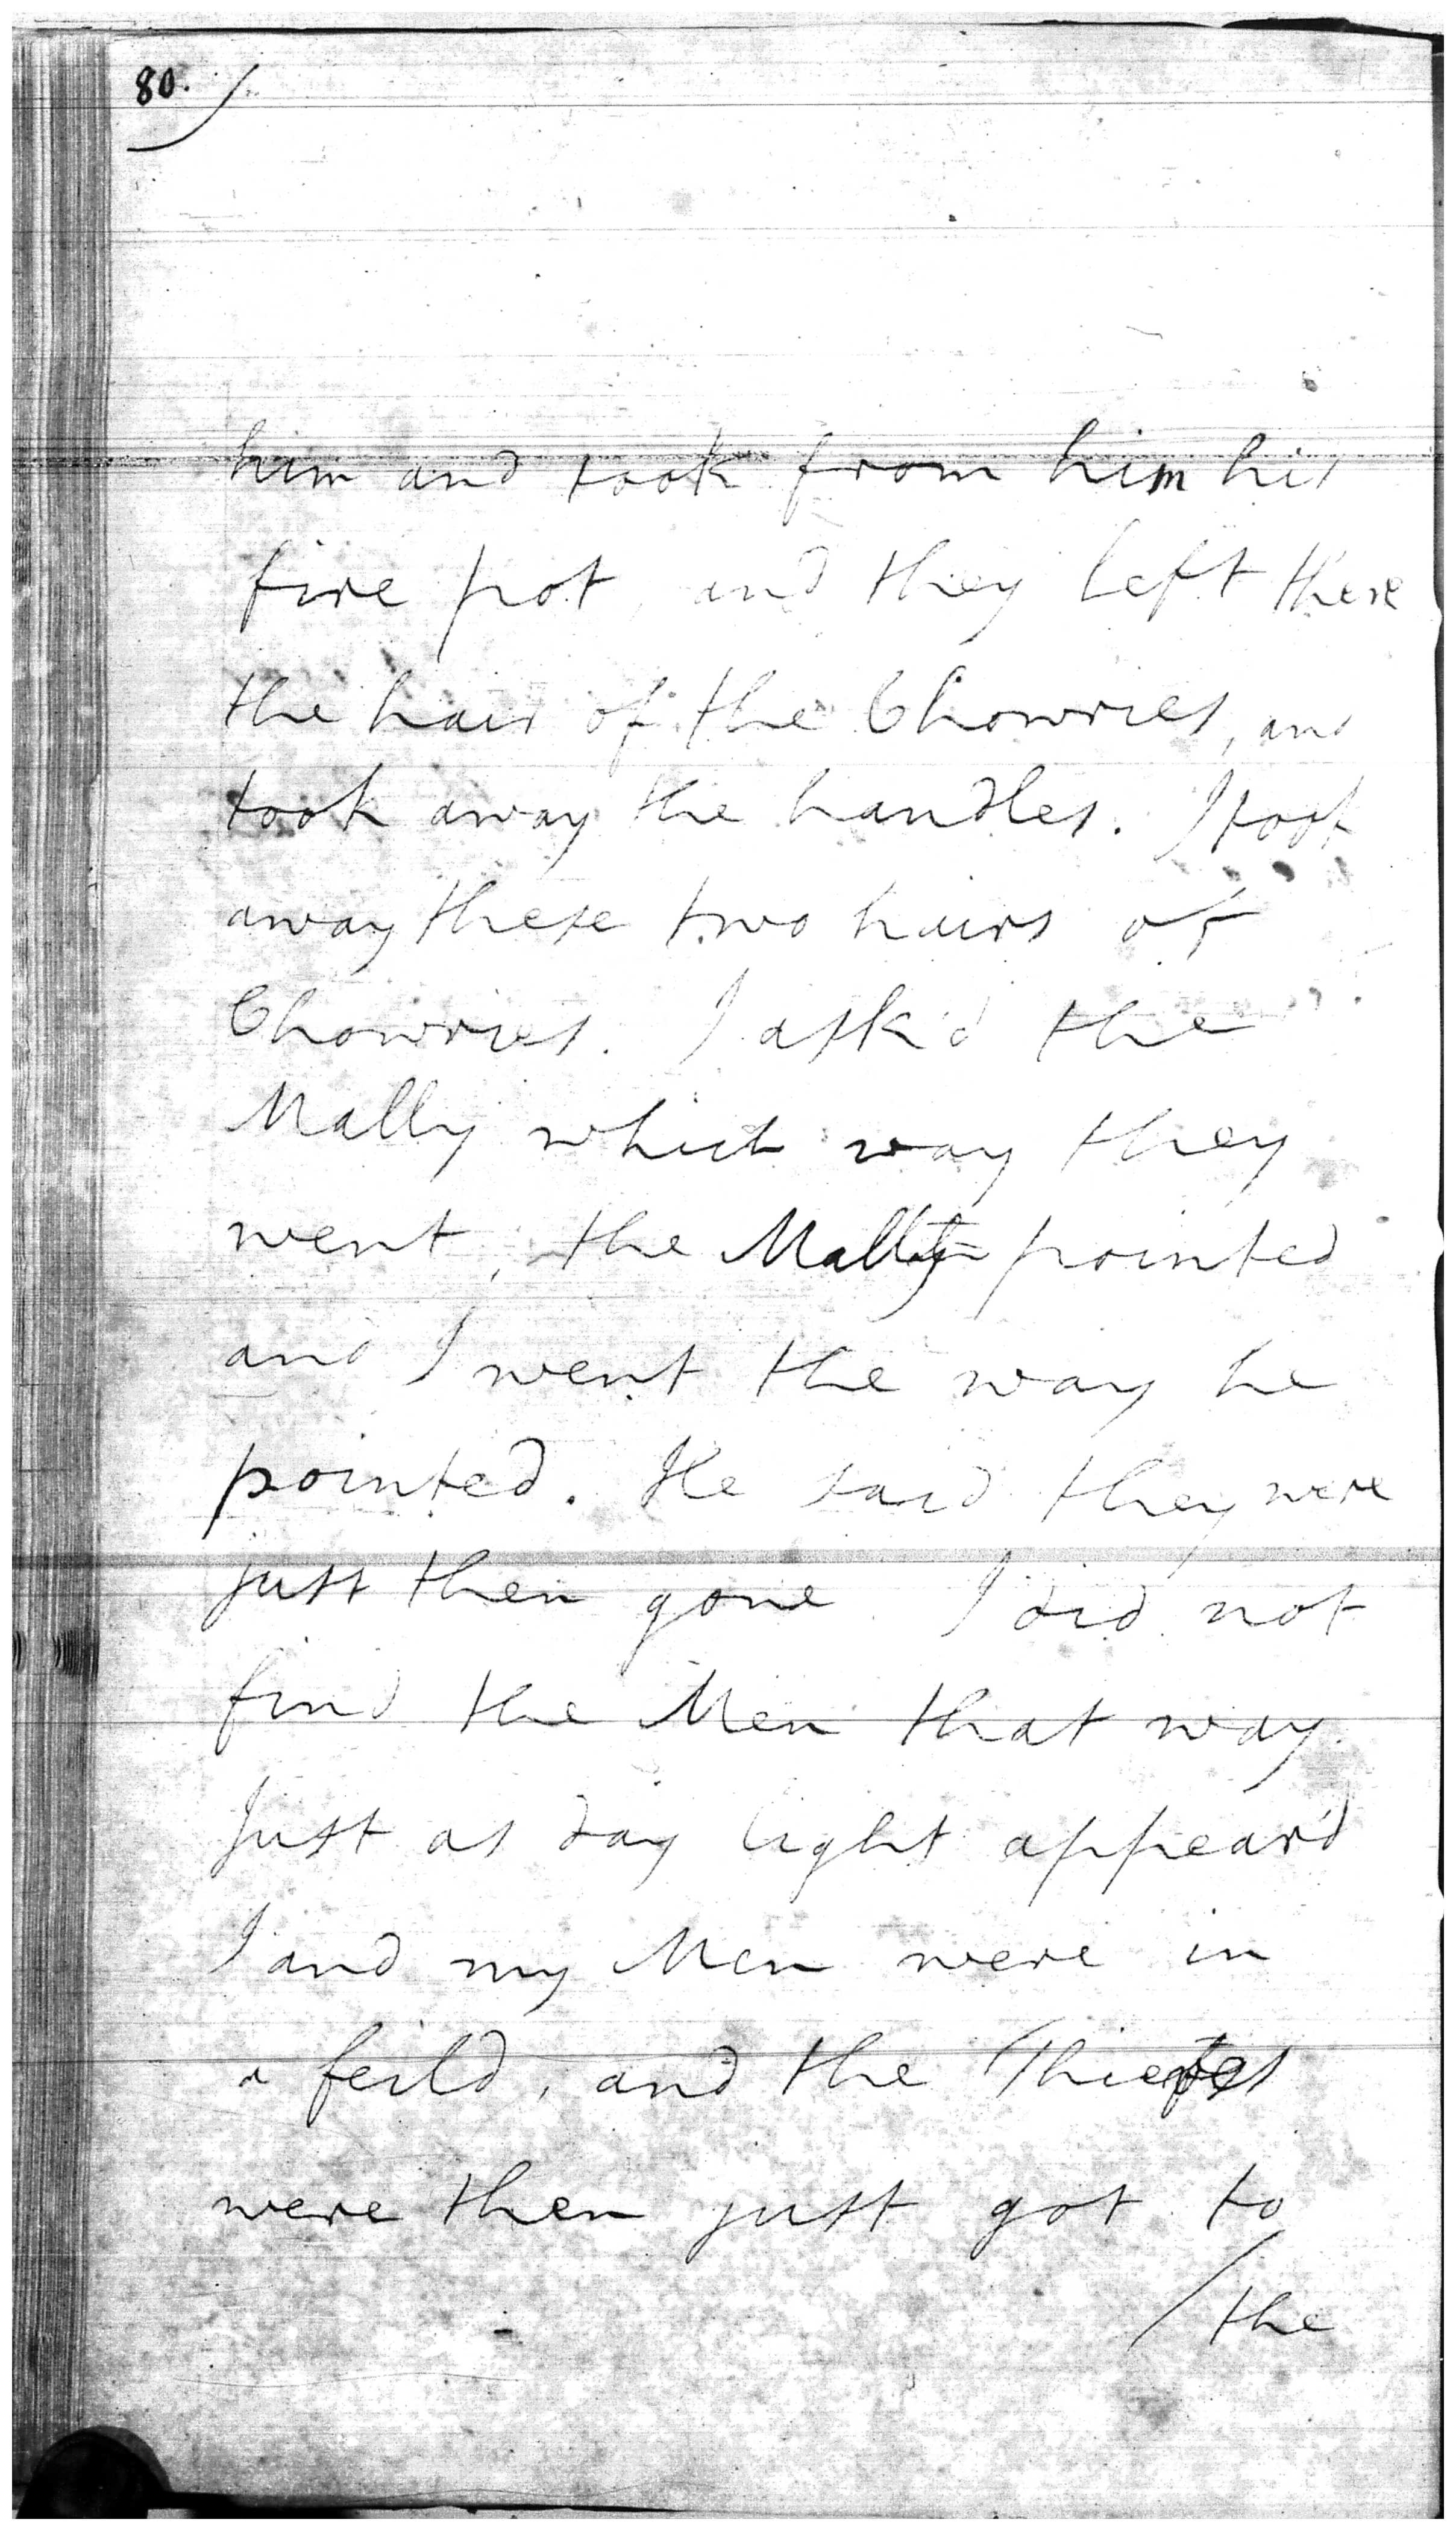 80.
him and took from him his
fire pot, and they left there
the hair of the Chowries, and
took away the handles. I took
away these two hairs of
Chowries. I ask'd the
Mally which way they
went, the Mally pointed
and I went the way he
pointed. He said they were
just then gone I did not
find the Men that way.
Just as day light appear'd
I and my Men were in
a feild, and the Thieves
were then just got to
/the